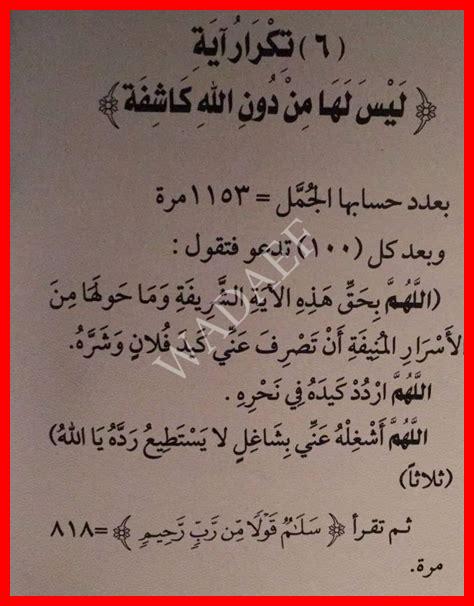 (٦) تَكْرَارُ آيَةِ
﴿ لَيْسَ لَهَا مِنْ دُونِ اللهِ كَاشِفَة ﴾
بعدد حسابها الجُمَّل = ١١٥٣ مرة
وبعد كل (١٠٠) تدعو فتقول :
(اللَّهُمَّ بِحَقِّ هَذِهِ الآيَةِ الشَّرِيفَةِ وَمَا حَوْلَهَا مِنَ
الأَسْرَارِ المُنِيفَةِ أَنْ تَصْرِفَ عَنِّي كَيْدَ فُلَانٍ وَشَرَّهُ.
اللَّهُمَّ ارْدُدْ كَيْدَهُ فِي نَحْرِهِ .
اللَّهُمَّ أَشْغِلْهُ عَنِّي بِشَاغِلٍ لا يَسْتَطِيعُ رَدَّهُ يَا اللهُ)
(ثلاثاً)
ثم تقرأ ﴿ سَلَٰمٌ قَوْلًا مِّن رَّبٍّ رَّحِيمٍ ﴾ =٨١٨
مرة.
WADAEF